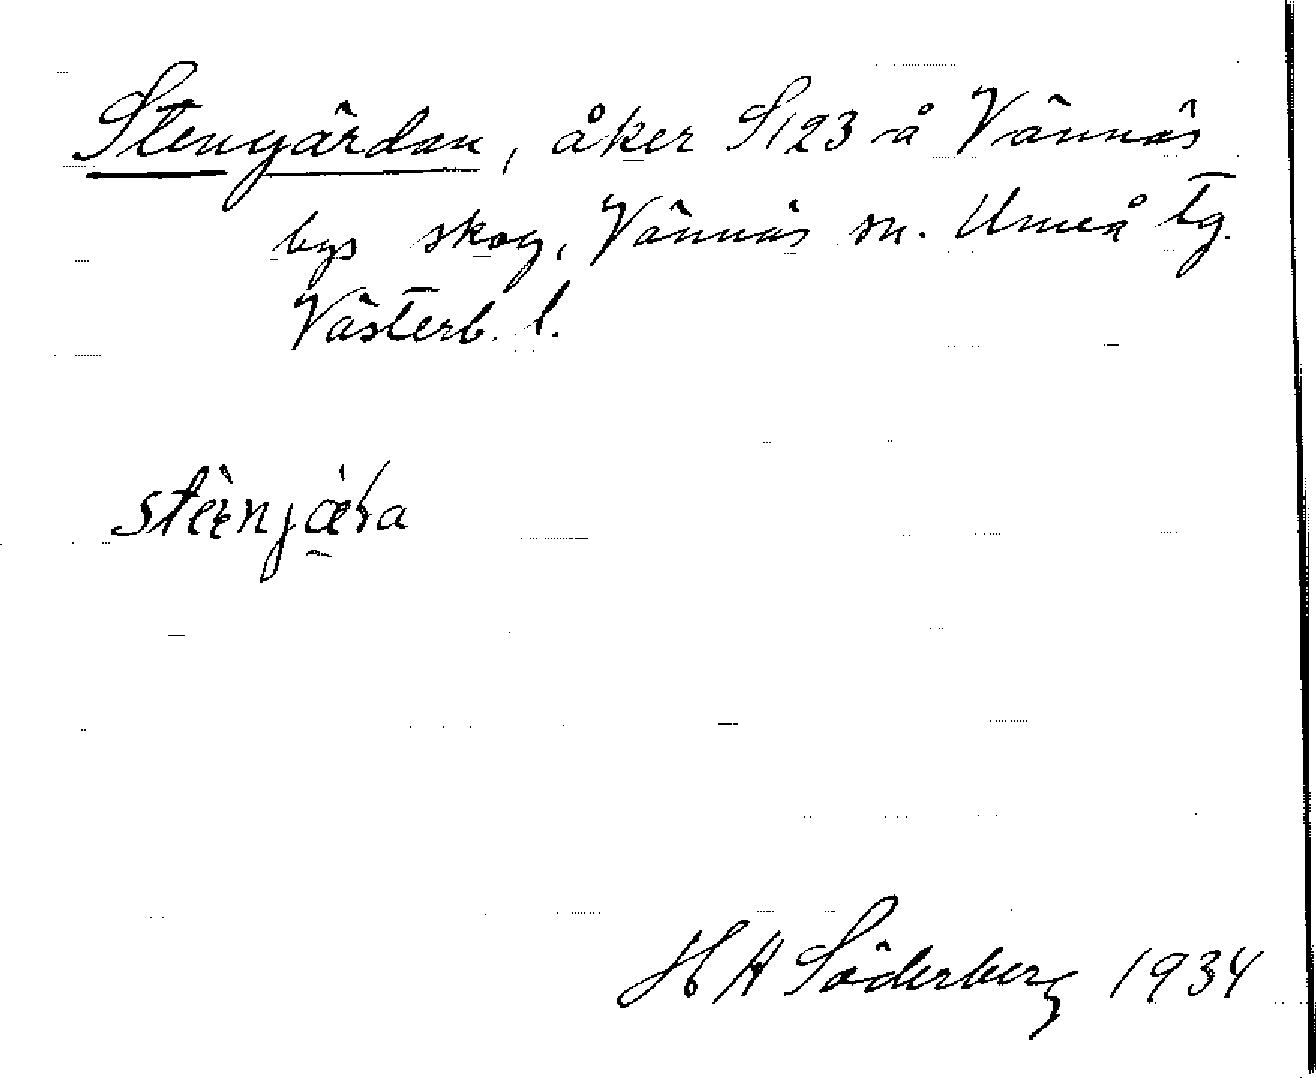 Stengärdan, åker S123 å Vännäs
bys skog, Vännäs sn. Umeå tg.
Västerb. l.
H A Söderberg 1934